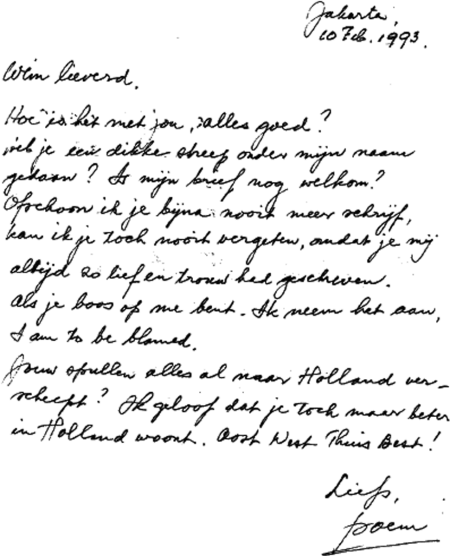 Jakarta,
10 Feb. 1993.
Wim lieverd.
Hoe is het met jou, alles goed?
Heb je een dikke streep onder mijn naam
gedaan? Is mijn brief nog welkom?
Ofschoon ik je bijna nooit meer schrijf,
kan ik je toch nooit vergeten, omdat je mij
altijd zo lief en trouw had geschreven.
Als je boos op me bent. Ik neem het aan,
I am to be blamed.
Jouw spullen alles al naar Holland ver-
scheept? Ik geloof dat je toch maar beter
in Holland woont. Oost West Thuis Best!
Liefs,